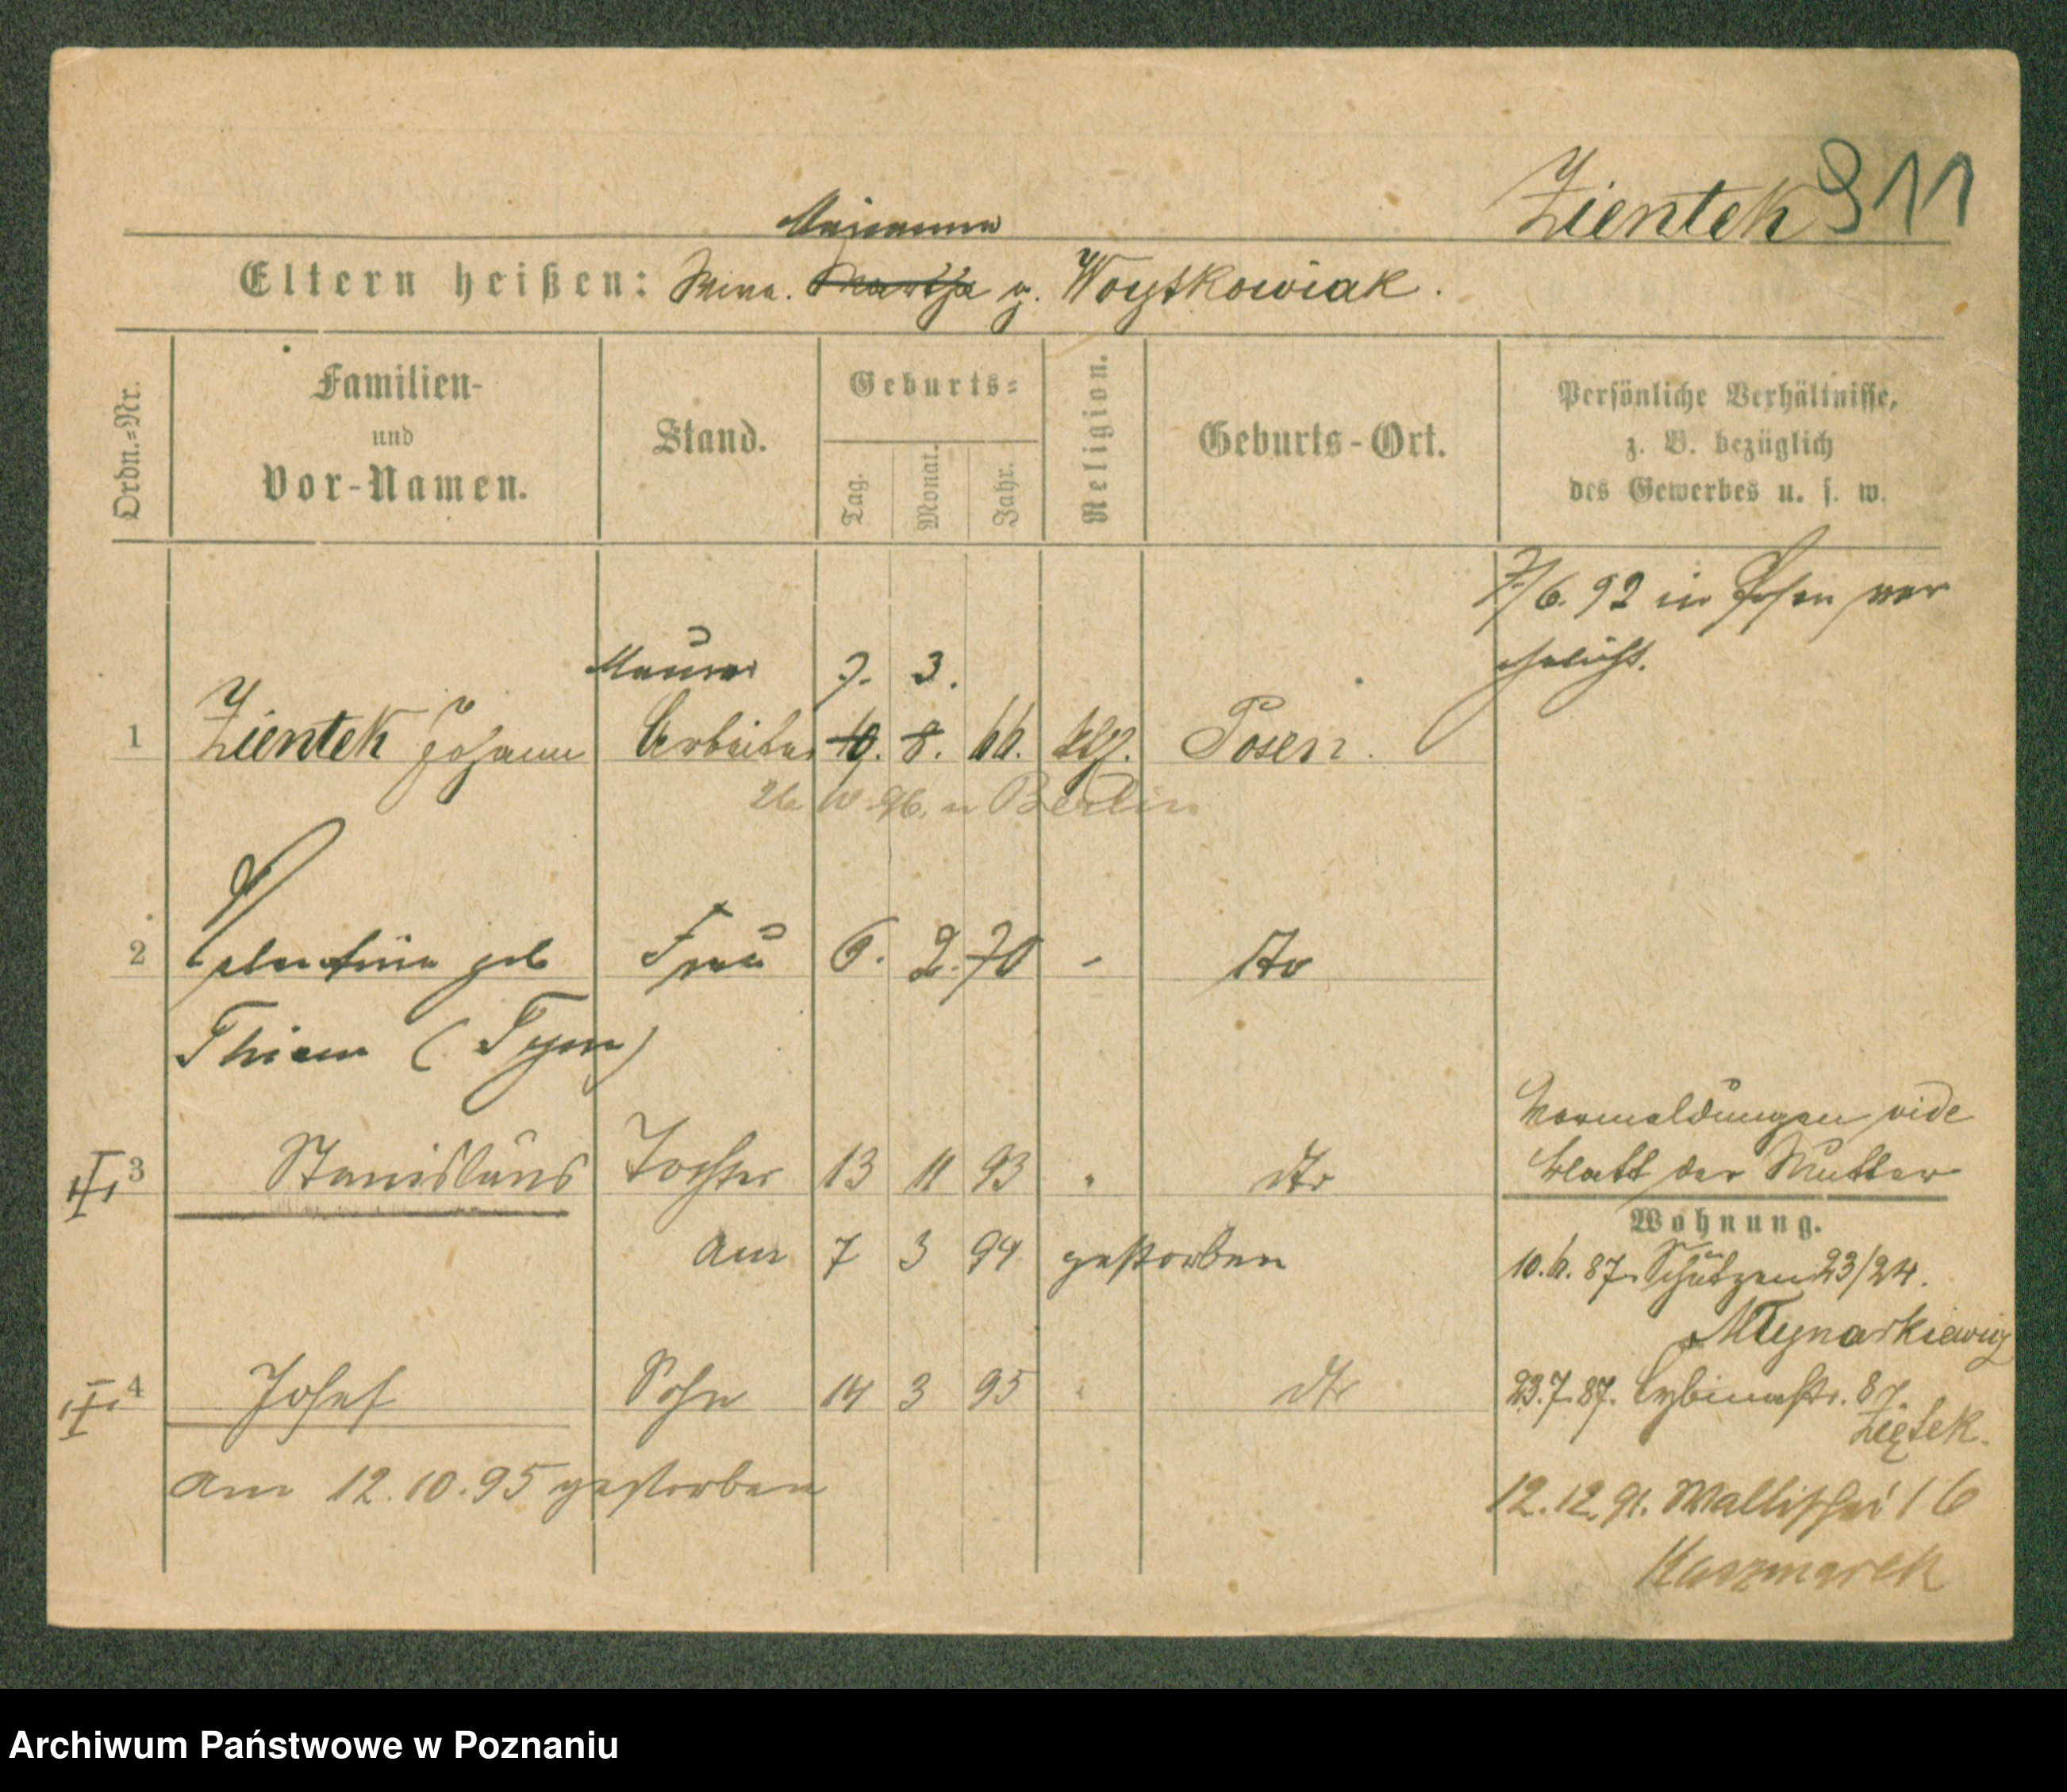 Zientek 911
Marianna
Eltern heißen: Wwe. Martha g. Woytkowiak.
Ordn.=Nr.
Familien-
und
Vor-Namen.
Stand.
Geburts=
Tag.
Monat.
Jahr.
Religion.
Geburts-Ort.
Persönliche Verhältnisse,
z. B. bezüglich
des Gewerbes u. s. w.
7/6. 92 in Posen ver
ehelicht.
Maurer 7. 3.
1 Zientek Johann Arbeiter 19. 8. 66. kth. Posen.
26 10. 96. n Berlin
2 Valentine geb Frau 6. 2. 70 - dto
Thiem (Tym)
Vormeldungen vide
Blatt der Mutter
3 Stanislaus Tochter 13 11 93 " dto
Wohnung.
am 7 3 94 gestorben
10.6. 87. Schützen 23/24.
Młynarkiewicz
4 Josef Sohn 14 3 95 " dto
23.7.87. Cybinastr. 87.
Ziętek.
am 12.10.95 gestorben
12.12.91. Wallischei 16
Kaczmarek
Archiwum Państwowe w Poznaniu